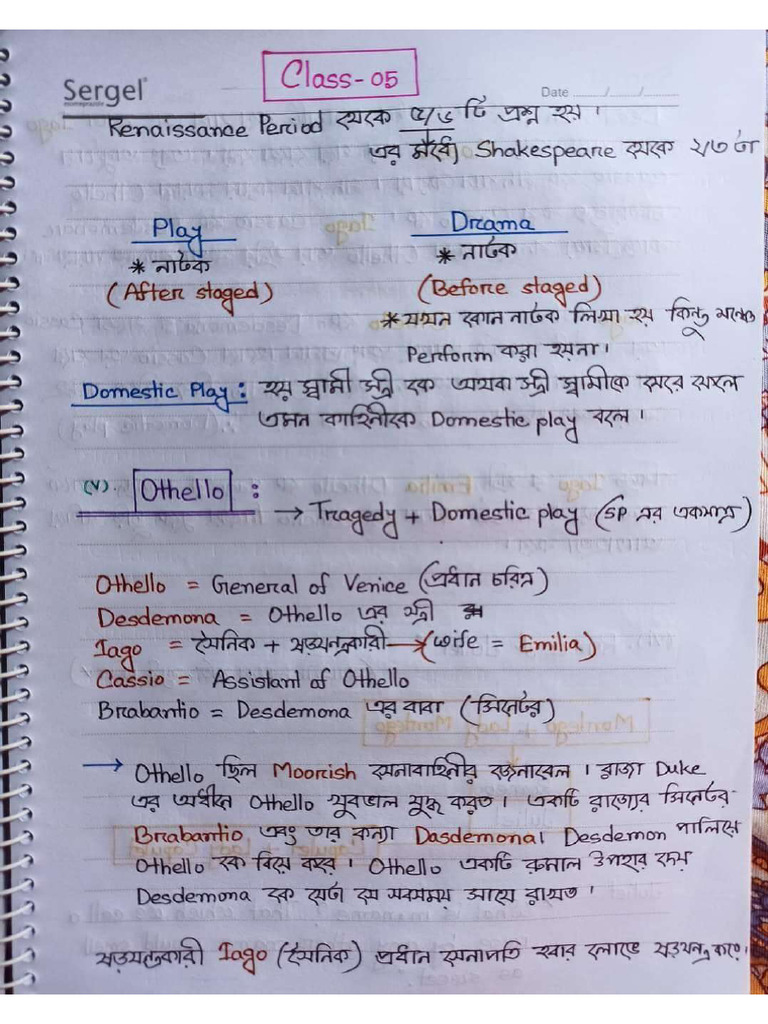 Class-05
Sergel
Date ...../...../.....
Renaissance Period থেকে ৫/৬ টি প্রশ্ন হয়।
এর মধ্যে Shakespeare থেকে ২/৩ টা
Play Drama
* নাটক * নাটক
(After staged) (Before staged)
* যখন কোন নাটক লিখা হয় কিন্তু মঞ্চে
Perform করা হয়না।
Domestic Play : হয় স্বামী স্ত্রী কে অথবা স্ত্রী স্বামীকে মেরে ফেলে
এমন কাহিনীকে Domestic play বলে।
(v). Othello :
→ Tragedy + Domestic play (SP এর একমাত্র)
Othello = General of Venice (প্রধান চরিত্র)
Desdemona = Othello এর স্ত্রী
Iago = সৈনিক + ষড়যন্ত্রকারী → (wife = Emilia)
Cassio = Assistant of Othello
Brabantio = Desdemona এর বাবা (সিনেটর)
→ Othello ছিল Moorish সেনাবাহিনীর জেনারেল। রাজা Duke
এর অধীনে Othello খুবভাল যুদ্ধ করত। একটি রাজ্যের সিনেটর
Brabantio এবং তার কন্যা Dasdemona। Desdemon পালিয়ে
Othello কে বিয়ে করে। Othello একটি রুমাল উপহার দেয়
Desdemona কে যেটা সে সবসময় সাথে রাখত।
ষড়যন্ত্রকারী Iago (সৈনিক) প্রধান সেনাপতি হবার লোভে ষড়যন্ত্র করে।